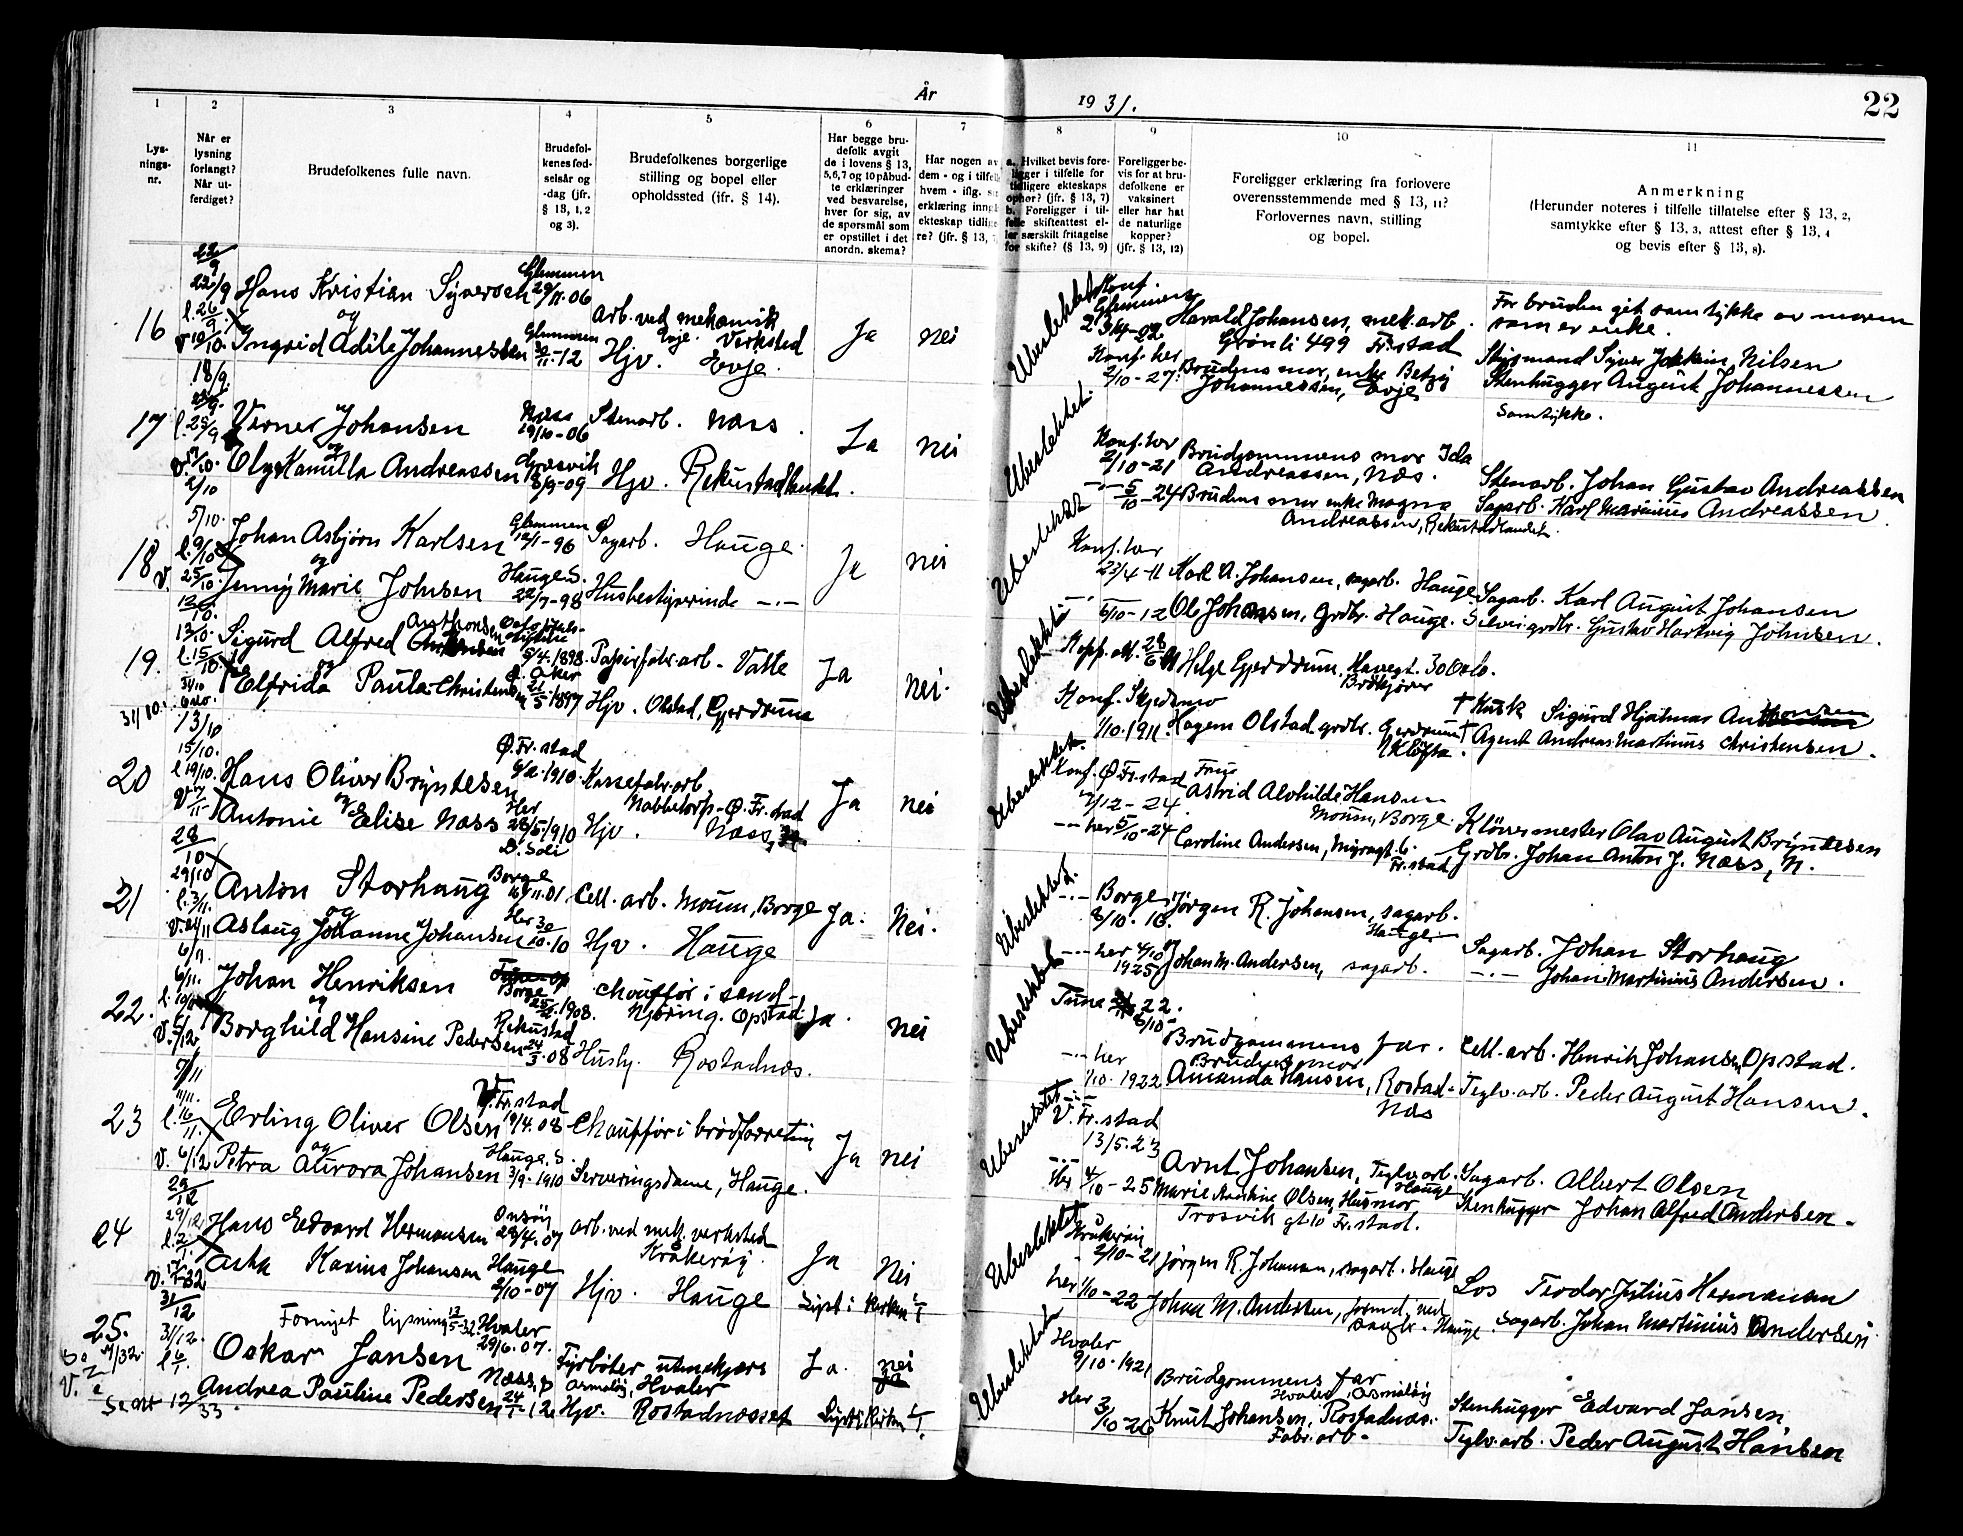 År
1931.
22
1
2
3
4
5
6
7
8
9
10
11
Lys-
nings-
nr.
Når er
lysning
forlangt?
Når ut-
ferdiget?
Brudefolkenes fulle navn.
Brudefol-
kenes fød-
selsår og
-dag (jfr.
§ 13, 1, 2
og 3).
Brudefolkenes borgerlige
stilling og bopel eller
opholdssted (jfr. § 14).
Har begge bru-
defolk avgit
de i lovens § 13,
5,6,7 og 10 påbud-
te erklæringer
ved besvarelse,
hver for sig, av
de spørsmål som
er opstillet i det
anordn. skema?
Har nogen av
dem - og i tilfelle
hvem - iflg.
erklæring inng
ekteskap tidlig
re? (jfr. § 13,
a. Hvilket bevis fore-
ligger i tilfelle for
tidligere ekteskaps
ophør? (jfr. § 13, 7)
b. Foreligger i til-
felle skifteattest el-
ler særskilt fritagelse
for skifte? (§ 13, 9)
Foreligger be-
vis for at bru-
defolkene er
vaksinert
eller har hat
de naturlige
kopper?
(jfr. § 13, 12)
Foreligger erklæring fra forlovere
overensstemmende med § 13, 11?
Forlovernes navn, stilling
og bopel.
Anmerkning
(Herunder noteres i tilfelle tillatelse efter § 13, 2,
samtykke efter § 13, 3, attest efter § 13, 4
og bevis efter § 13, 8).
16
22/9
l. 26/9
Hans Kristian Syversen
og
Ingrid Adile Johannessen
Glemmen
29/11.06
Glemmen
30/11-12
Arb. ved mekanisk
Verksted
Hjv. Evje.
Ja
nei
Ubeslektet
Konf.
Glemmen
Konf. her
2/10-27.
Harald Johansen, mek. arb.
Grönli 499 Fr.stad
Brudens mor, enke Betzy
Johannessen, Evje
For bruden git samtykke av moren
som er enke.
Styrmand Syver Nilsen
Stenhugger August Johannessen
Samtykke.
17
l. 25/9
Verner Johansen
og
Olga Kamilla Andreassen
Næss
19/10-06
Gresvik
8/9-09
Stenarb. Næss.
Hjv. Rekustadlandet.
Ja
nei
Ubeslektet.
Konf. her
2/10-21
5/10-24
Brudgommens mor Ida
Andreassen, Næs.
Brudens mor enke Magna
Andreassen, Rekustadlandet.
Stenarb. Johan Gustav Andreassen
Sagarb. Karl Marinius Andreassen.
18
5/10.
l. 9/10
v. 25/10.
Johan Asbjörn Karlsen
og
Jenny Marie Johnsen
Glemmen
12/1-96
Hauge S.
22/7-98
Sagarb. Hauge.
Husbestyrerinde -.-
Ja
nei
Ubeslektet
Konf. her
23/4-11
6/10-12
Karl A. Johansen, sagarb. Hauge.
Ole Johansen, Grdbr. Hauge.
Sagarb. Karl August Johansen
Selveigrdbr. Gustav Hartvig Johnsen.
19.
13/10.
l. 15/10.
31/10.
Sigurd Alfred Anthonsen
og
Elfrida Paula Christensen
5/4.1898.
Ö. Aker
21/5.1897
Papirfabr.arb. Valle
Hjv. Olstad, Gjerdrum
Ja
nei.
Ubeslektet
Kopp. att.
Konf. Skjedsmo
1/10.1911.
Helge Gjerdrum, 30 Oslo.
Brökjörer
Hagem Olstad grdbr. Gjerdrum
Klöfta.
† Kusk Sigurd Hjalmar Anthonsen
† Agent Andreas Martinus Christensen.
20
15/10.
l. 19/10.
v. 7/11
Hans Oliver Bryntesen
og
Antonie Elise Næss
Ö. Fr.stad
6/2.1910.
Her
28/5.1910
Kassefabr.arb.
Nabbetorp-Ö. Fr.stad
Hjv. Næss
Ja
nei
Ubeslektet.
Konf. Ö Fr.stad
her 5/10-24
Frue
Astrid Alvhilde Hansen
Moum, Borge.
Caroline Andersen,
Fr.stad
Klövermester Olav August Bryntesen
Grdbr. Johan Anton J. Næss, N.
21
28/10
29/10
l. 3/11.
Anton Storhaug
og
Aslaug Johanne Johansen
Borge
16/11.01.
Her 30/10.10
Cell. arb. Moum, Borge
Hjv. Hauge
Ja.
Nei.
Ubeslektet.
-.- Borge
8/10.16.
-.- her 4/10
1925
Jörgen R. Johansen, sagarb.
Hauge.
Johan M. Andersen, sagarb.
Sagarb. Johan Storhaug
-.- Johan Martinius Andersen.
22.
6/11.
Johan Henriksen
og
Borghild Hansine Pedersen
Borge
Rekustad
24/3.08
Chauffør i sand-
kjöring. Opstad
Husby. Rostadnæs.
Ja.
nei
Ubeslektet
Tune
-.- her
1/10.1922
Brudgommens far.
Brudens mor
Amanda Hansen, Rostad-
Næs
Cell. arb. Henrik Johansen, Opstad.
Teglv.arb. Peder August Hansen.
23
l. 16/11.
v. 6/12
Erling Oliver Olsen
og
Petra Aurora Johansen
V. Fr.stad
19/4.08
Hauge. S.
3/9.1910
Chauffør i brödforretning
Serveringsdame, Hauge.
Ja
nei
Ubeslektet
V. Fr.stad
13/5.23
Her 4/10-25
Arnt Johansen, Teglv.arb.
Hauge
Marie Olsen, Husmor
Trosvik gt 10 Fr.stad.
Sagarb. Albert Olsen
Stenhugger Johan Alfred Andersen.
24
29/12
l. 2/1.
Hans Edvard Hermansen
Aska Karius Johansen
Onsöy
28/4.07
Hauge
2/10-07
arb. ved mek. verksted
Kråkeröy.
Hjv. Hauge
Ja
Nei
Lyst i kirken
Ubeslektet
Kråkeröy
2/10-21
her 1/10-22
Jørgen R. Johansen, sagarb. Hauge
Johan M. Andersen, formd. ved
Hauge.
Los Teodor Julius Hermansen
Sagarb. Johan Martinius Andersen.
25.
31/12
31/12.
l. 6/1.
Fornyet lysning
Oskar Jansen
Andrea Pauline Pedersen
Hvaler
29/6.07.
Næss,
24/1-12
Fyrböter utenskjærs
Asmaløy, Hvaler
Hjv. Rostadnæsset
Ja.
nei
Lyst i kirken
Ubeslektet
Hvaler
9/10.1921
Her 3/10-26
Brudgommens far
Hvaler, Asmaløy
Knut Johansen, Rostadnæs.
Fabr.arb.
Stenhugger Edvard Jansen
Teglv.arb. Peder August Hansen